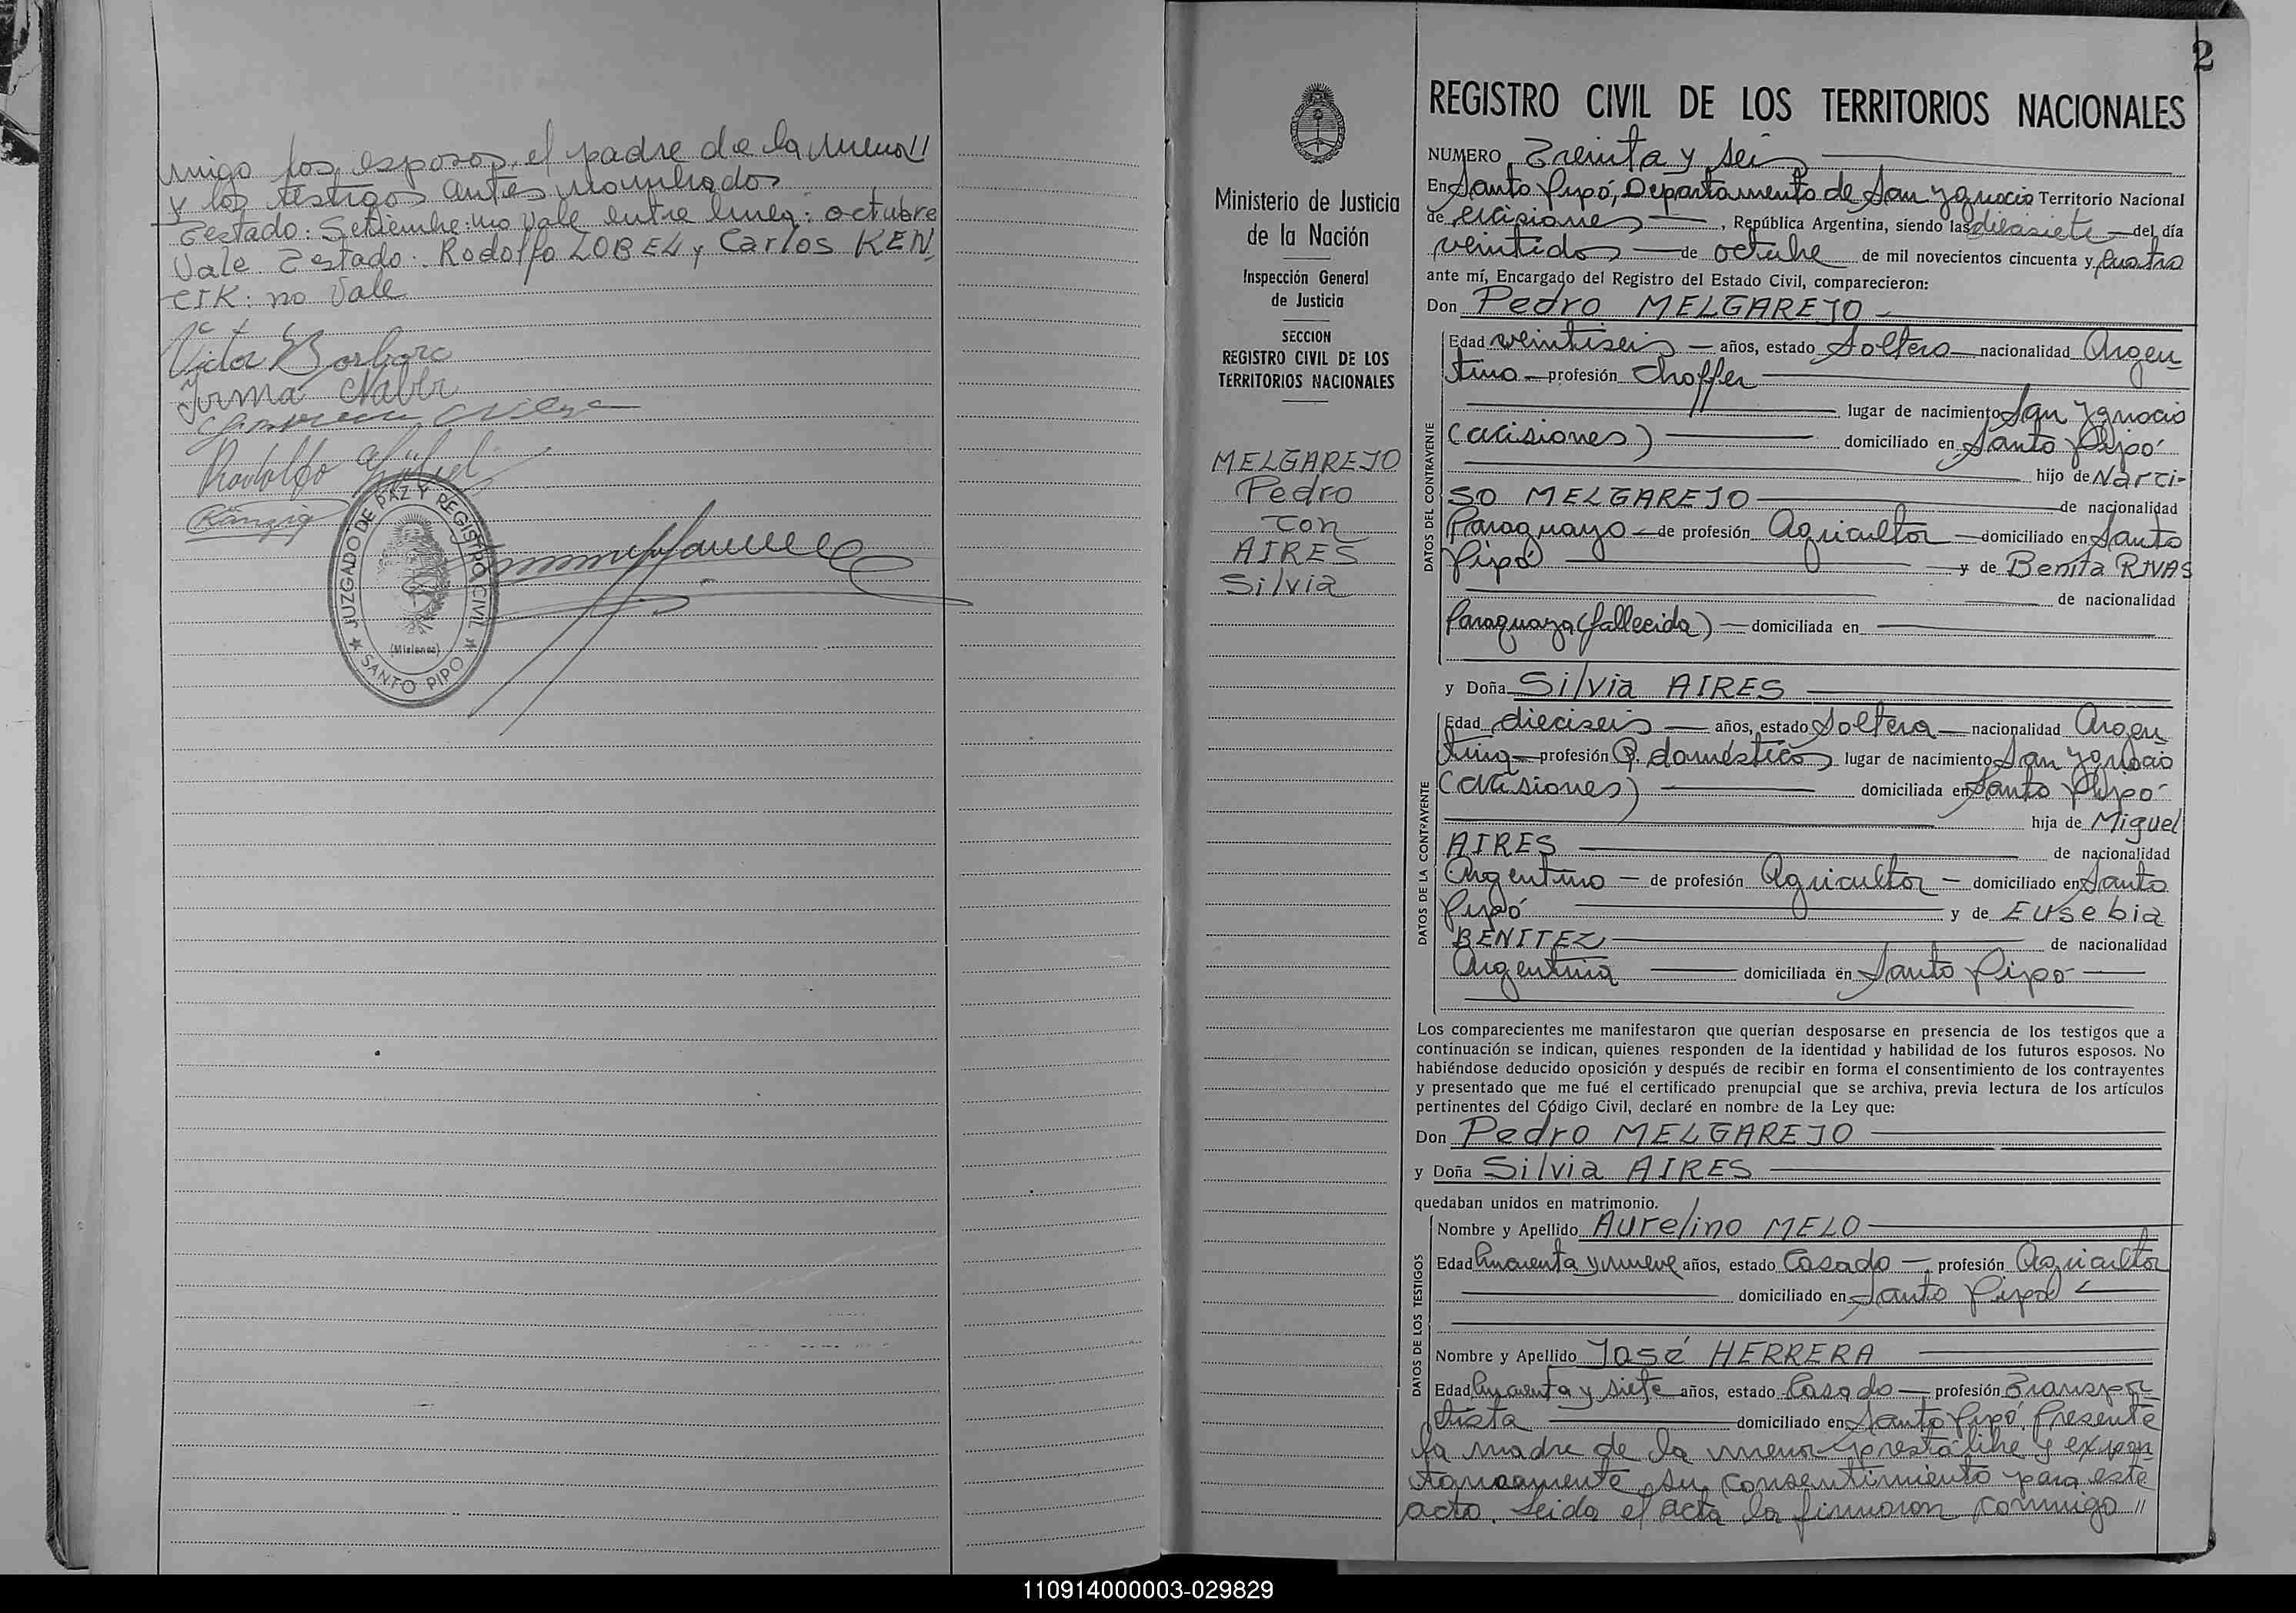 migo los esposos, el padre de la menor//
y los testigos antes nombrados
Testado: Setiembre: no vale entre linea: octubre
Vale Testado: Rodolfo ZOBEL y Carlos KEN
CIK: no Vale
Victor Barbaro
Irma
Rodolfo
Känzig
JUZGADO DE PAZ Y REGISTRO CIVIL
(Misiones)
★ SANTO PIPO ★
2
Ministerio de Justicia
de la Nación
Inspección General
de Justicia
SECCION
REGISTRO CIVIL DE LOS
TERRITORIOS NACIONALES
MELGAREJO
Pedro
con
AIRES
Silvia
REGISTRO CIVIL DE LOS TERRITORIOS NACIONALES
NUMERO Treinta y seis
En Santo Pipó, Departamento de San Ygnacio Territorio Nacional
de Misiones, República Argentina, siendo las diecisiete del día
veintidos de octubre de mil novecientos cincuenta y cuatro
ante mí, Encargado del Registro del Estado Civil, comparecieron:
Don Pedro MELGAREJO
DATOS DEL CONTRAYENTE
Edad veintiseis años, estado Soltero nacionalidad Argen
tino profesión Choffer
lugar de nacimiento San Ygnacio
(Misiones) domiciliado en Santo Pipó
hijo de Narci-
so MELGAREJO de nacionalidad
Paraguayo de profesión Agricultor domiciliado en Santo
Pipó y de Benita RIVAS
de nacionalidad
Paraguaya (fallecida) domiciliada en
y Doña Silvia AIRES
DATOS DE LA CONTRAYENTE
Edad dieciseis años, estado Soltera nacionalidad Argen
tina profesión Q. domésticos lugar de nacimiento San Ygnacio
(Misiones) domiciliada en Santo Pipó
hija de Miguel
AIRES de nacionalidad
Argentino de profesión Agricultor domiciliado en Santo
Pipó y de Eusebia
BENITEZ de nacionalidad
Argentina domiciliada en Santo Pipó
Los comparecientes me manifestaron que querían desposarse en presencia de los testigos que a
continuación se indican, quienes responden de la identidad y habilidad de los futuros esposos. No
habiéndose deducido oposición y después de recibir en forma el consentimiento de los contrayentes
y presentado que me fué el certificado prenupcial que se archiva, previa lectura de los artículos
pertinentes del Código Civil, declaré en nombre de la Ley que:
Don Pedro MELGAREJO
y Doña Silvia AIRES
quedaban unidos en matrimonio.
DATOS DE LOS TESTIGOS
Nombre y Apellido Aurelino MELO
Edad Cincuenta y nueve años, estado Casado profesión Agricultor
domiciliado en Santo Pipó
Nombre y Apellido José HERRERA
Edad Cincuenta y siete años, estado Casado profesión Transpor
tista domiciliado en Santo Pipó. Presente
la madre de la menor presta libre y expon
taneamente su consentimiento para este
acto. Leida el acta la firmaron conmigo //
110914000003-029829